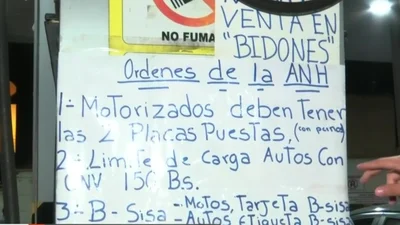 NO FUMA
VENTA EN
"BIDONES"
Ordenes de la ANH
1:- MOTORIZADOS deben Tener
las 2 Placas PUESTAS, (con perno)
2:- Limite de Carga AUTOS Con
GNV 150 Bs.
3:- B-Sisa - MOTOS, TarjeTA B-sisa
- AUTOS, ETiqueTa B-sisa